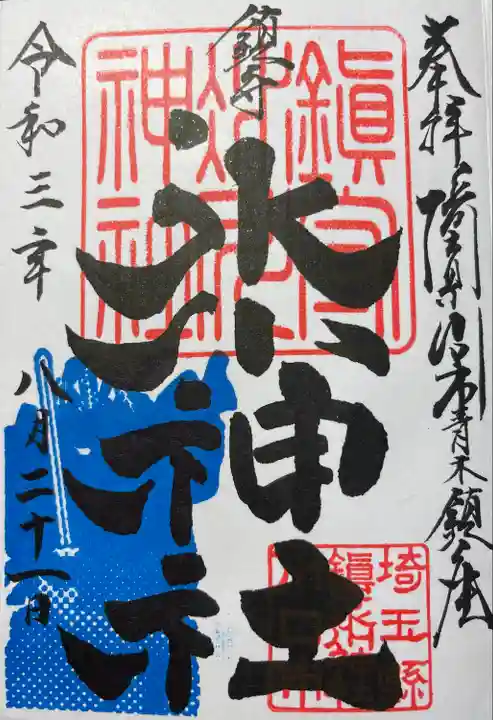 奉拝 埼玉県川口市青木鎮座
鎮守
氷川神社
令和三年八月二十一日
鎭守
氷川
神社
埼玉縣